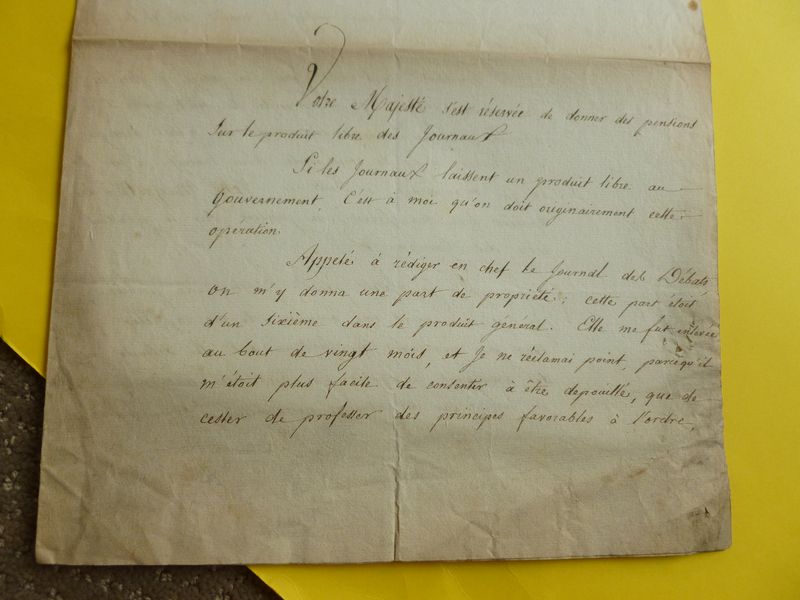 Votre Majesté s'est réservée de donner des pensions
sur le produit libre des Journaux
Si les Journaux laissent un produit libre au
gouvernement, C'est à moi qu'on doit originairement cette
opération.
Appelé à rédiger en chef le Journal des Débats,
on m'y donna une part de propriété; cette part étoit
d'un sixième dans le produit général. Elle me fut enlevée
au bout de vingt mois, et Je ne réclamai point, parcequ'il
m'étoit plus facile de consentir à être depouillé, que de
cesser de professer des principes favorables à l'ordre,